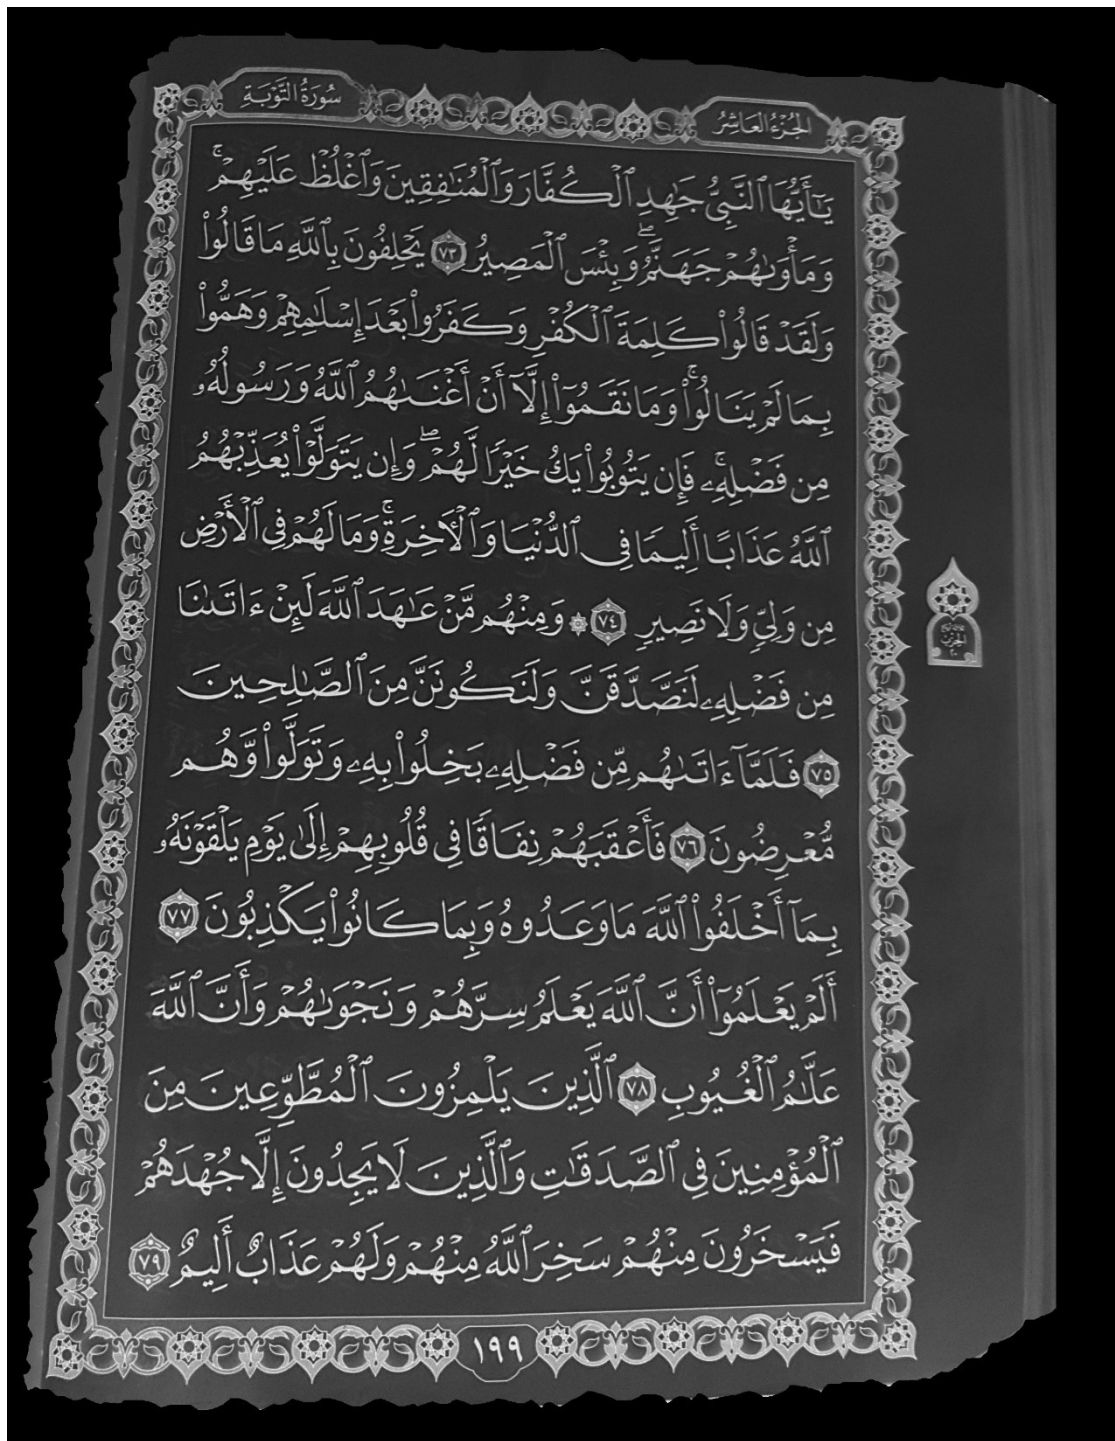 سُورَةُ التَّوْبَةِ
الجُزْءُ العَاشِرُ
يَٰٓأَيُّهَا ٱلنَّبِيُّ جَٰهِدِ ٱلْكُفَّارَ وَٱلْمُنَٰفِقِينَ وَٱغْلُظْ عَلَيْهِمْۚ
وَمَأْوَىٰهُمْ جَهَنَّمُۖ وَبِئْسَ ٱلْمَصِيرُ ٧٣ يَحْلِفُونَ بِٱللَّهِ مَا قَالُوا۟
وَلَقَدْ قَالُوا۟ كَلِمَةَ ٱلْكُفْرِ وَكَفَرُوا۟ بَعْدَ إِسْلَٰمِهِمْ وَهَمُّوا۟
بِمَا لَمْ يَنَالُوا۟ۚ وَمَا نَقَمُوٓا۟ إِلَّآ أَنْ أَغْنَىٰهُمُ ٱللَّهُ وَرَسُولُهُۥ
مِن فَضْلِهِۦۚ فَإِن يَتُوبُوا۟ يَكُ خَيْرًا لَّهُمْۖ وَإِن يَتَوَلَّوْا۟ يُعَذِّبْهُمُ
ٱللَّهُ عَذَابًا أَلِيمًا فِى ٱلدُّنْيَا وَٱلْءَاخِرَةِۚ وَمَا لَهُمْ فِى ٱلْأَرْضِ
مِن وَلِىٍّ وَلَا نَصِيرٍ ٧٤ ۞ وَمِنْهُم مَّنْ عَٰهَدَ ٱللَّهَ لَئِنْ ءَاتَىٰنَا
مِن فَضْلِهِۦ لَنَصَّدَّقَنَّ وَلَنَكُونَنَّ مِنَ ٱلصَّٰلِحِينَ
٧٥ فَلَمَّآ ءَاتَىٰهُم مِّن فَضْلِهِۦ بَخِلُوا۟ بِهِۦ وَتَوَلَّوا۟ وَّهُم
مُّعْرِضُونَ ٧٦ فَأَعْقَبَهُمْ نِفَاقًا فِى قُلُوبِهِمْ إِلَىٰ يَوْمِ يَلْقَوْنَهُۥ
بِمَآ أَخْلَفُوا۟ ٱللَّهَ مَا وَعَدُوهُ وَبِمَا كَانُوا۟ يَكْذِبُونَ ٧٧
أَلَمْ يَعْلَمُوٓا۟ أَنَّ ٱللَّهَ يَعْلَمُ سِرَّهُمْ وَنَجْوَىٰهُمْ وَأَنَّ ٱللَّهَ
عَلَّٰمُ ٱلْغُيُوبِ ٧٨ ٱلَّذِينَ يَلْمِزُونَ ٱلْمُطَّوِّعِينَ مِنَ
ٱلْمُؤْمِنِينَ فِى ٱلصَّدَقَٰتِ وَٱلَّذِينَ لَا يَجِدُونَ إِلَّا جُهْدَهُمْ
فَيَسْخَرُونَ مِنْهُمْ سَخِرَ ٱللَّهُ مِنْهُمْ وَلَهُمْ عَذَابٌ أَلِيمٌ ٧٩
الحِزْبُ
٢٠
١٩٩